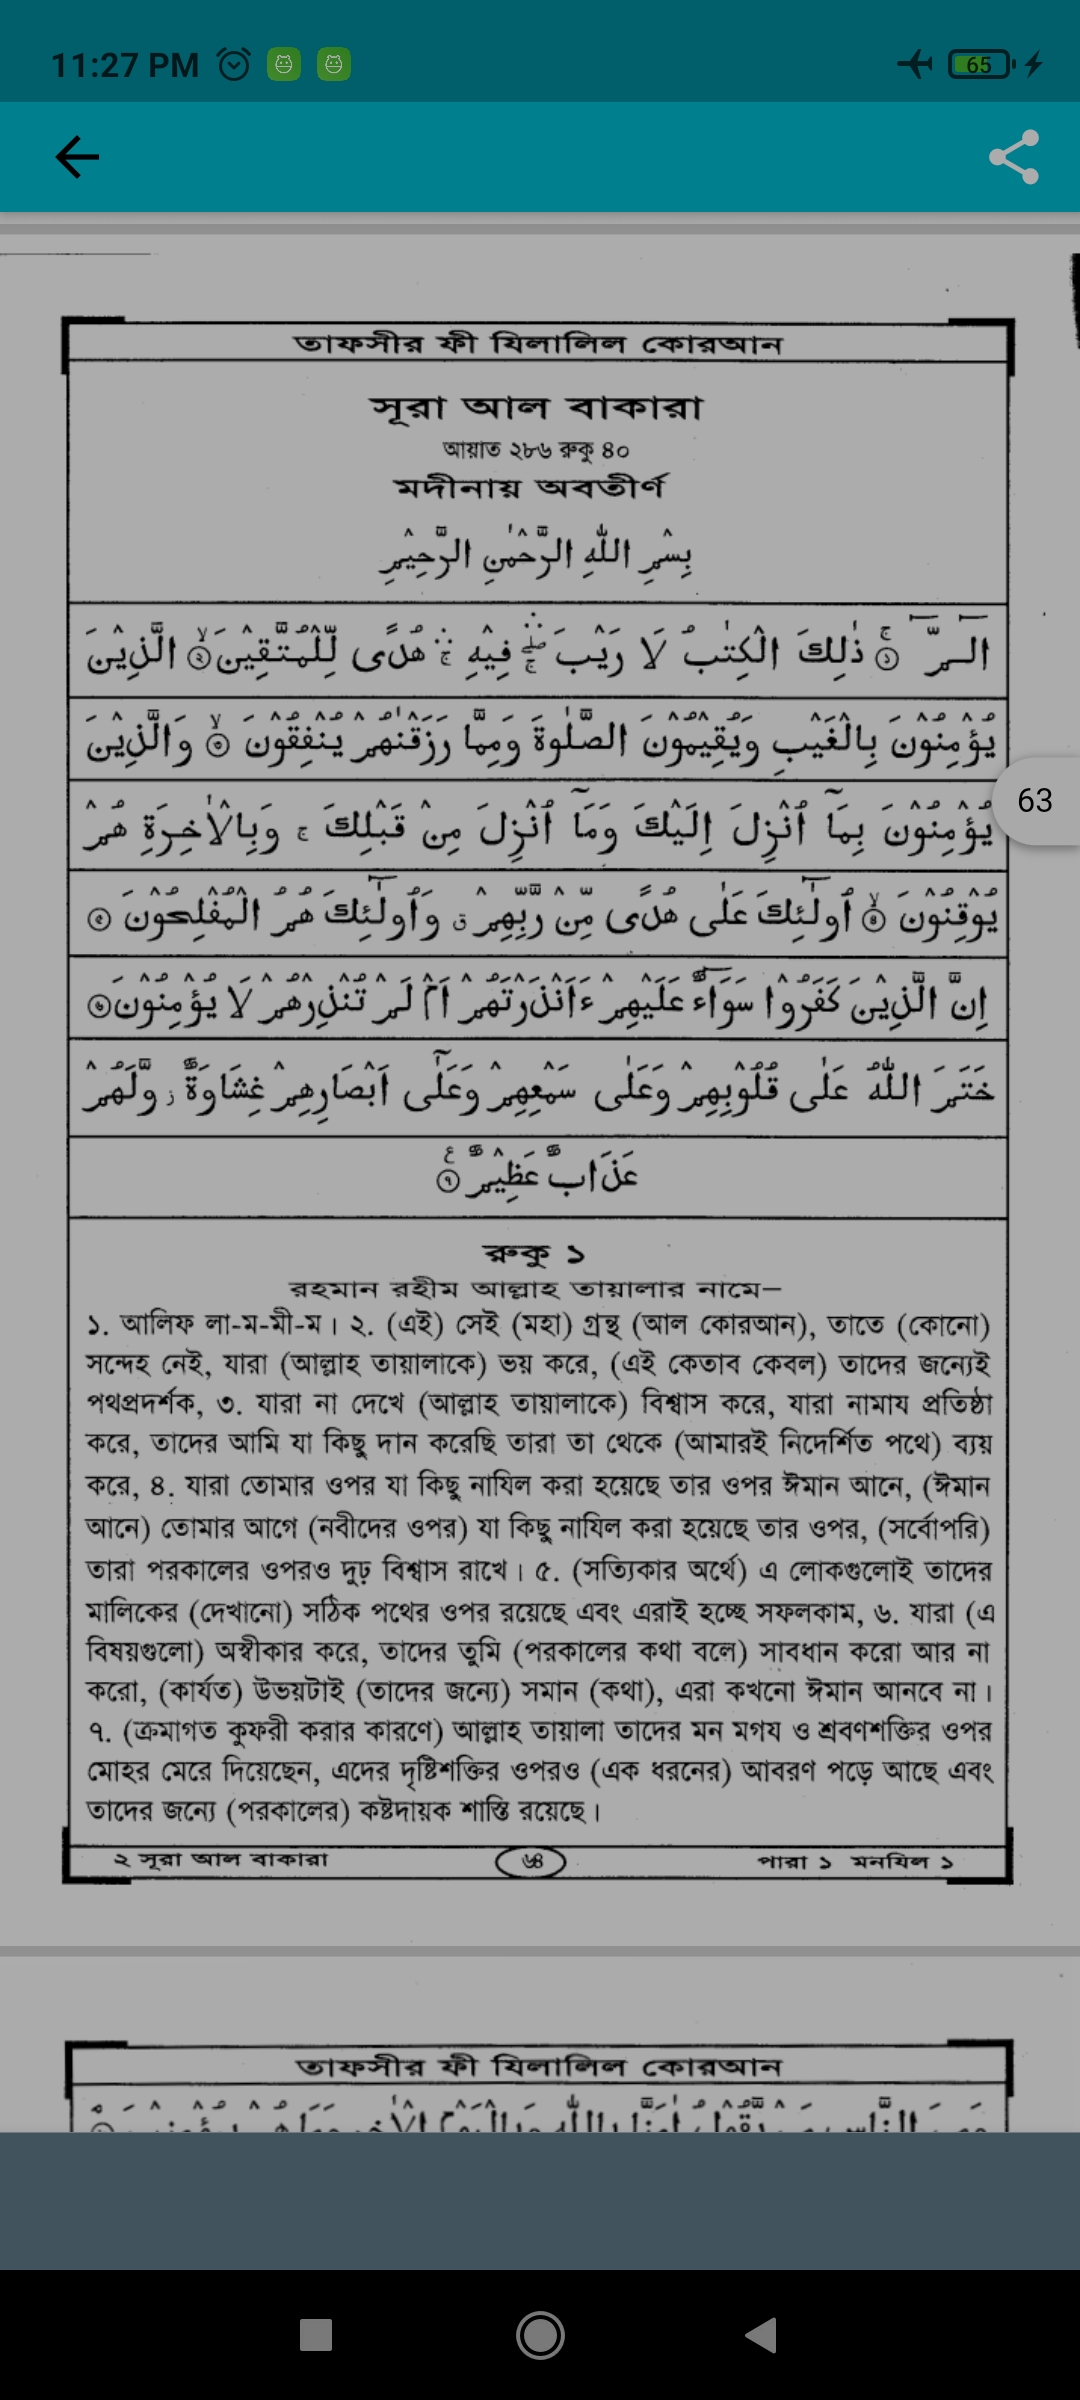 11:27 PM
65
তাফসীর ফী যিলালিল কোরআন
সূরা আল বাকারা
আয়াত ২৮৬ রুকু ৪০
মদীনায় অবতীর্ণ
بِسْمِ اللّٰهِ الرَّحْمٰنِ الرَّحِيْمِ
الٓـمّٓ ۚ﴿١﴾ ذٰلِكَ الْكِتٰبُ لَا رَيْبَ ۛۖۚ فِيْهِ ۛۚ هُدًى لِّلْمُتَّقِيْنَ ۙ﴿٢﴾ الَّذِيْنَ
يُؤْمِنُوْنَ بِالْغَيْبِ وَيُقِيْمُوْنَ الصَّلٰوةَ وَمِمَّا رَزَقْنٰهُمْ يُنْفِقُوْنَ ۙ﴿٣﴾ وَالَّذِيْنَ
يُؤْمِنُوْنَ بِمَآ اُنْزِلَ اِلَيْكَ وَمَآ اُنْزِلَ مِنْ قَبْلِكَ ۚ وَبِالْاٰخِرَةِ هُمْ
63
يُوْقِنُوْنَ ۙ﴿٤﴾ اُولٰٓئِكَ عَلٰى هُدًى مِّنْ رَّبِّهِمْ ۗ وَاُولٰٓئِكَ هُمُ الْمُفْلِحُوْنَ ﴿٥﴾
اِنَّ الَّذِيْنَ كَفَرُوْا سَوَآءٌ عَلَيْهِمْ ءَاَنْذَرْتَهُمْ اَمْ لَمْ تُنْذِرْهُمْ لَا يُؤْمِنُوْنَ ﴿٦﴾
خَتَمَ اللّٰهُ عَلٰى قُلُوْبِهِمْ وَعَلٰى سَمْعِهِمْ وَعَلٰٓى اَبْصَارِهِمْ غِشَاوَةٌ ز وَّلَهُمْ
عَذَابٌ عَظِيْمٌ ﴿٧﴾ ع
রুকু ১
রহমান রহীম আল্লাহ তায়ালার নামে–
১. আলিফ লা-ম-মী-ম। ২. (এই) সেই (মহা) গ্রন্থ (আল কোরআন), তাতে (কোনো)
সন্দেহ নেই, যারা (আল্লাহ তায়ালাকে) ভয় করে, (এই কেতাব কেবল) তাদের জন্যেই
পথপ্রদর্শক, ৩. যারা না দেখে (আল্লাহ তায়ালাকে) বিশ্বাস করে, যারা নামায প্রতিষ্ঠা
করে, তাদের আমি যা কিছু দান করেছি তারা তা থেকে (আমারই নিদের্শিত পথে) ব্যয়
করে, ৪. যারা তোমার ওপর যা কিছু নাযিল করা হয়েছে তার ওপর ঈমান আনে, (ঈমান
আনে) তোমার আগে (নবীদের ওপর) যা কিছু নাযিল করা হয়েছে তার ওপর, (সর্বোপরি)
তারা পরকালের ওপরও দৃঢ় বিশ্বাস রাখে। ৫. (সত্যিকার অর্থে) এ লোকগুলোই তাদের
মালিকের (দেখানো) সঠিক পথের ওপর রয়েছে এবং এরাই হচ্ছে সফলকাম, ৬. যারা (এ
বিষয়গুলো) অস্বীকার করে, তাদের তুমি (পরকালের কথা বলে) সাবধান করো আর না
করো, (কার্যত) উভয়টাই (তাদের জন্যে) সমান (কথা), এরা কখনো ঈমান আনবে না।
৭. (ক্রমাগত কুফরী করার কারণে) আল্লাহ তায়ালা তাদের মন মগয ও শ্রবণশক্তির ওপর
মোহর মেরে দিয়েছেন, এদের দৃষ্টিশক্তির ওপরও (এক ধরনের) আবরণ পড়ে আছে এবং
তাদের জন্যে (পরকালের) কষ্টদায়ক শাস্তি রয়েছে।
২ সূরা আল বাকারা
৬৪
পারা ১ মনযিল ১
তাফসীর ফী যিলালিল কোরআন